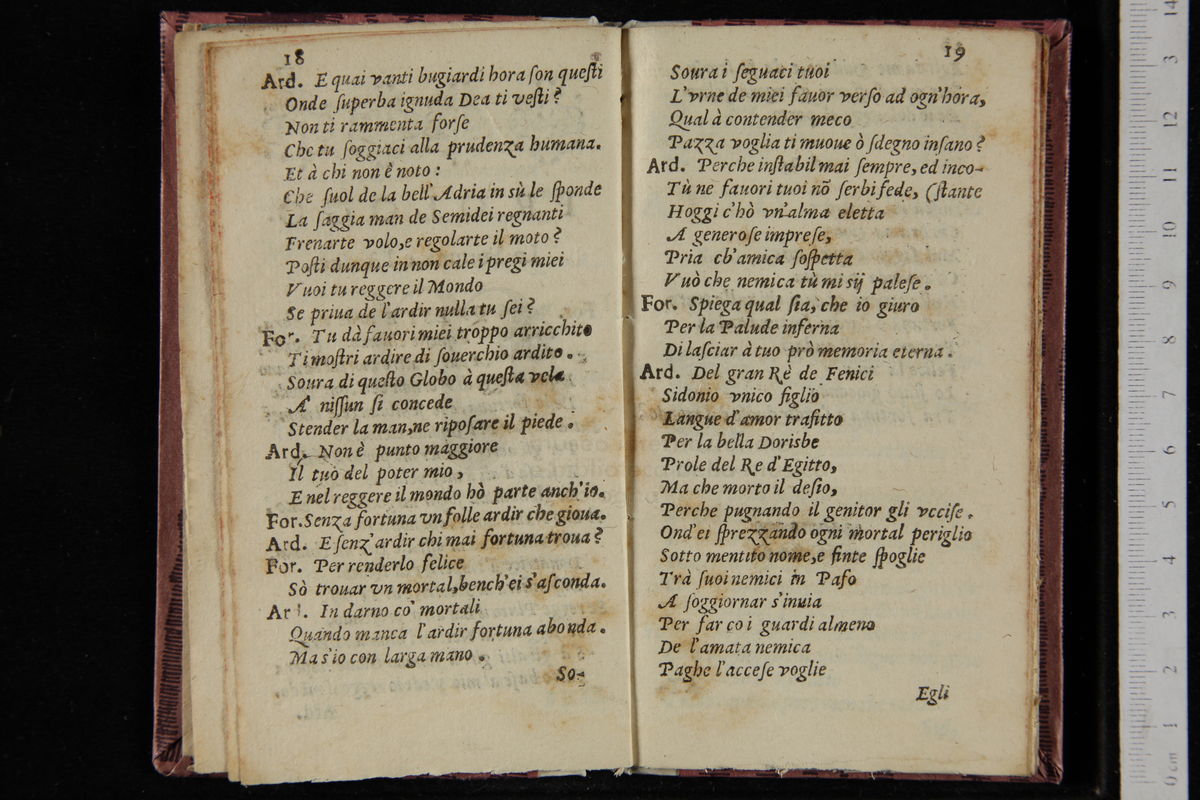 18
Ard. E quai vanti bugiardi hora ſon queſti
Onde ſuperba ignuda Dea ti veſti?
Non ti rammenta forſe
Che tu ſoggiaci alla prudenza humana.
Et à chi non è noto:
Che ſuol de la bell'Adria in sù le ſponde
La ſaggia man de Semidei regnanti
Frenarte volo,e regolarte il moto?
Poſti dunque in non cale i pregi miei
Vuoi tu reggere il Mondo
Se priua de l'ardir nulla tu ſei?
For. Tu dà fauori miei troppo arricchito
Ti moſtri ardire di ſouerchio ardito.
Soura di queſto Globo à queſta vela
A' niſſun ſi concede
Stender la man,ne ripoſare il piede.
Ard. Non è punto maggiore
Il tuo del poter mio,
E nel reggere il mondo hò parte anch'io.
For.Senza fortuna vn folle ardir che gioua.
Ard. E ſenz'ardir chi mai fortuna troua?
For. Per renderlo felice
Sò trouar vn mortal,bench'ei s'aſconda.
Ard. In darno co' mortali
Quando manca l'ardir fortuna abonda.
Ma s'io con larga mano.
So-
19
Soura i ſeguaci tuoi
L'vrne de miei fauor verſo ad ogn'hora,
Qual à contender meco
Pazza voglia ti muoue ò ſdegno inſano?
Ard. Perche inſtabil mai ſempre, ed inco-
Tù ne fauori tuoi nō ſerbi fede, (ſtante
Hoggi c'hò vn'alma eletta
A generoſe impreſe,
Pria ch'amica ſoſpetta
Vuò che nemica tù mi sij paleſe.
For. Spiega qual ſia, che io giuro
Per la Palude inferna
Di laſciar à tuo prò memoria eterna.
Ard. Del gran Rè de Fenici
Sidonio vnico figlio
Langue d'amor trafitto
Per la bella Dorisbe
Prole del Re d'Egitto,
Ma che morto il deſio,
Perche pugnando il genitor gli vcciſe.
Ond'ei ſprezzando ogni mortal periglio
Sotto mentito nome,e finte ſpoglie
Trà ſuoi nemici in Pafo
A ſoggiornar s'inuia
Per far co i guardi almeno
De l'amata nemica
Paghe l'acceſe voglie
Egli